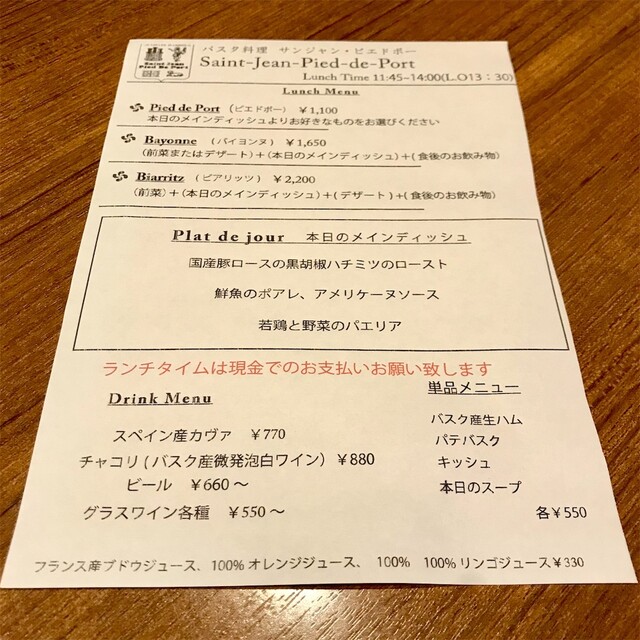 Saint Jean
Pied De Port
バスク料理 サンジャン・ピエドポー
Saint-Jean-Pied-de-Port
Lunch Time 11:45-14:00(L.O13：30)
Lunch Menu
Pied de Port （ピエドポー） ￥1,100
本日のメインディッシュよりお好きなものをお選びください
Bayonne （バイヨンヌ） ￥1,650
（前菜またはデザート）＋（本日のメインディッシュ）＋（食後のお飲み物）
Biarritz （ビアリッツ） ￥2,200
（前菜）＋（本日のメインディッシュ）＋（デザート）＋（食後のお飲み物）
Plat de jour 本日のメインディッシュ
国産豚ロースの黒胡椒ハチミツのロースト
鮮魚のポアレ、アメリケーヌソース
若鶏と野菜のパエリア
ランチタイムは現金でのお支払いお願い致します
Drink Menu
スペイン産カヴァ ￥770
チャコリ（バスク産微発泡白ワイン）￥880
ビール ￥660～
グラスワイン各種 ￥550～
単品メニュー
バスク産生ハム
パテバスク
キッシュ
本日のスープ
各￥550
フランス産ブドウジュース、100%オレンジジュース、 100% 100%リンゴジュース￥330